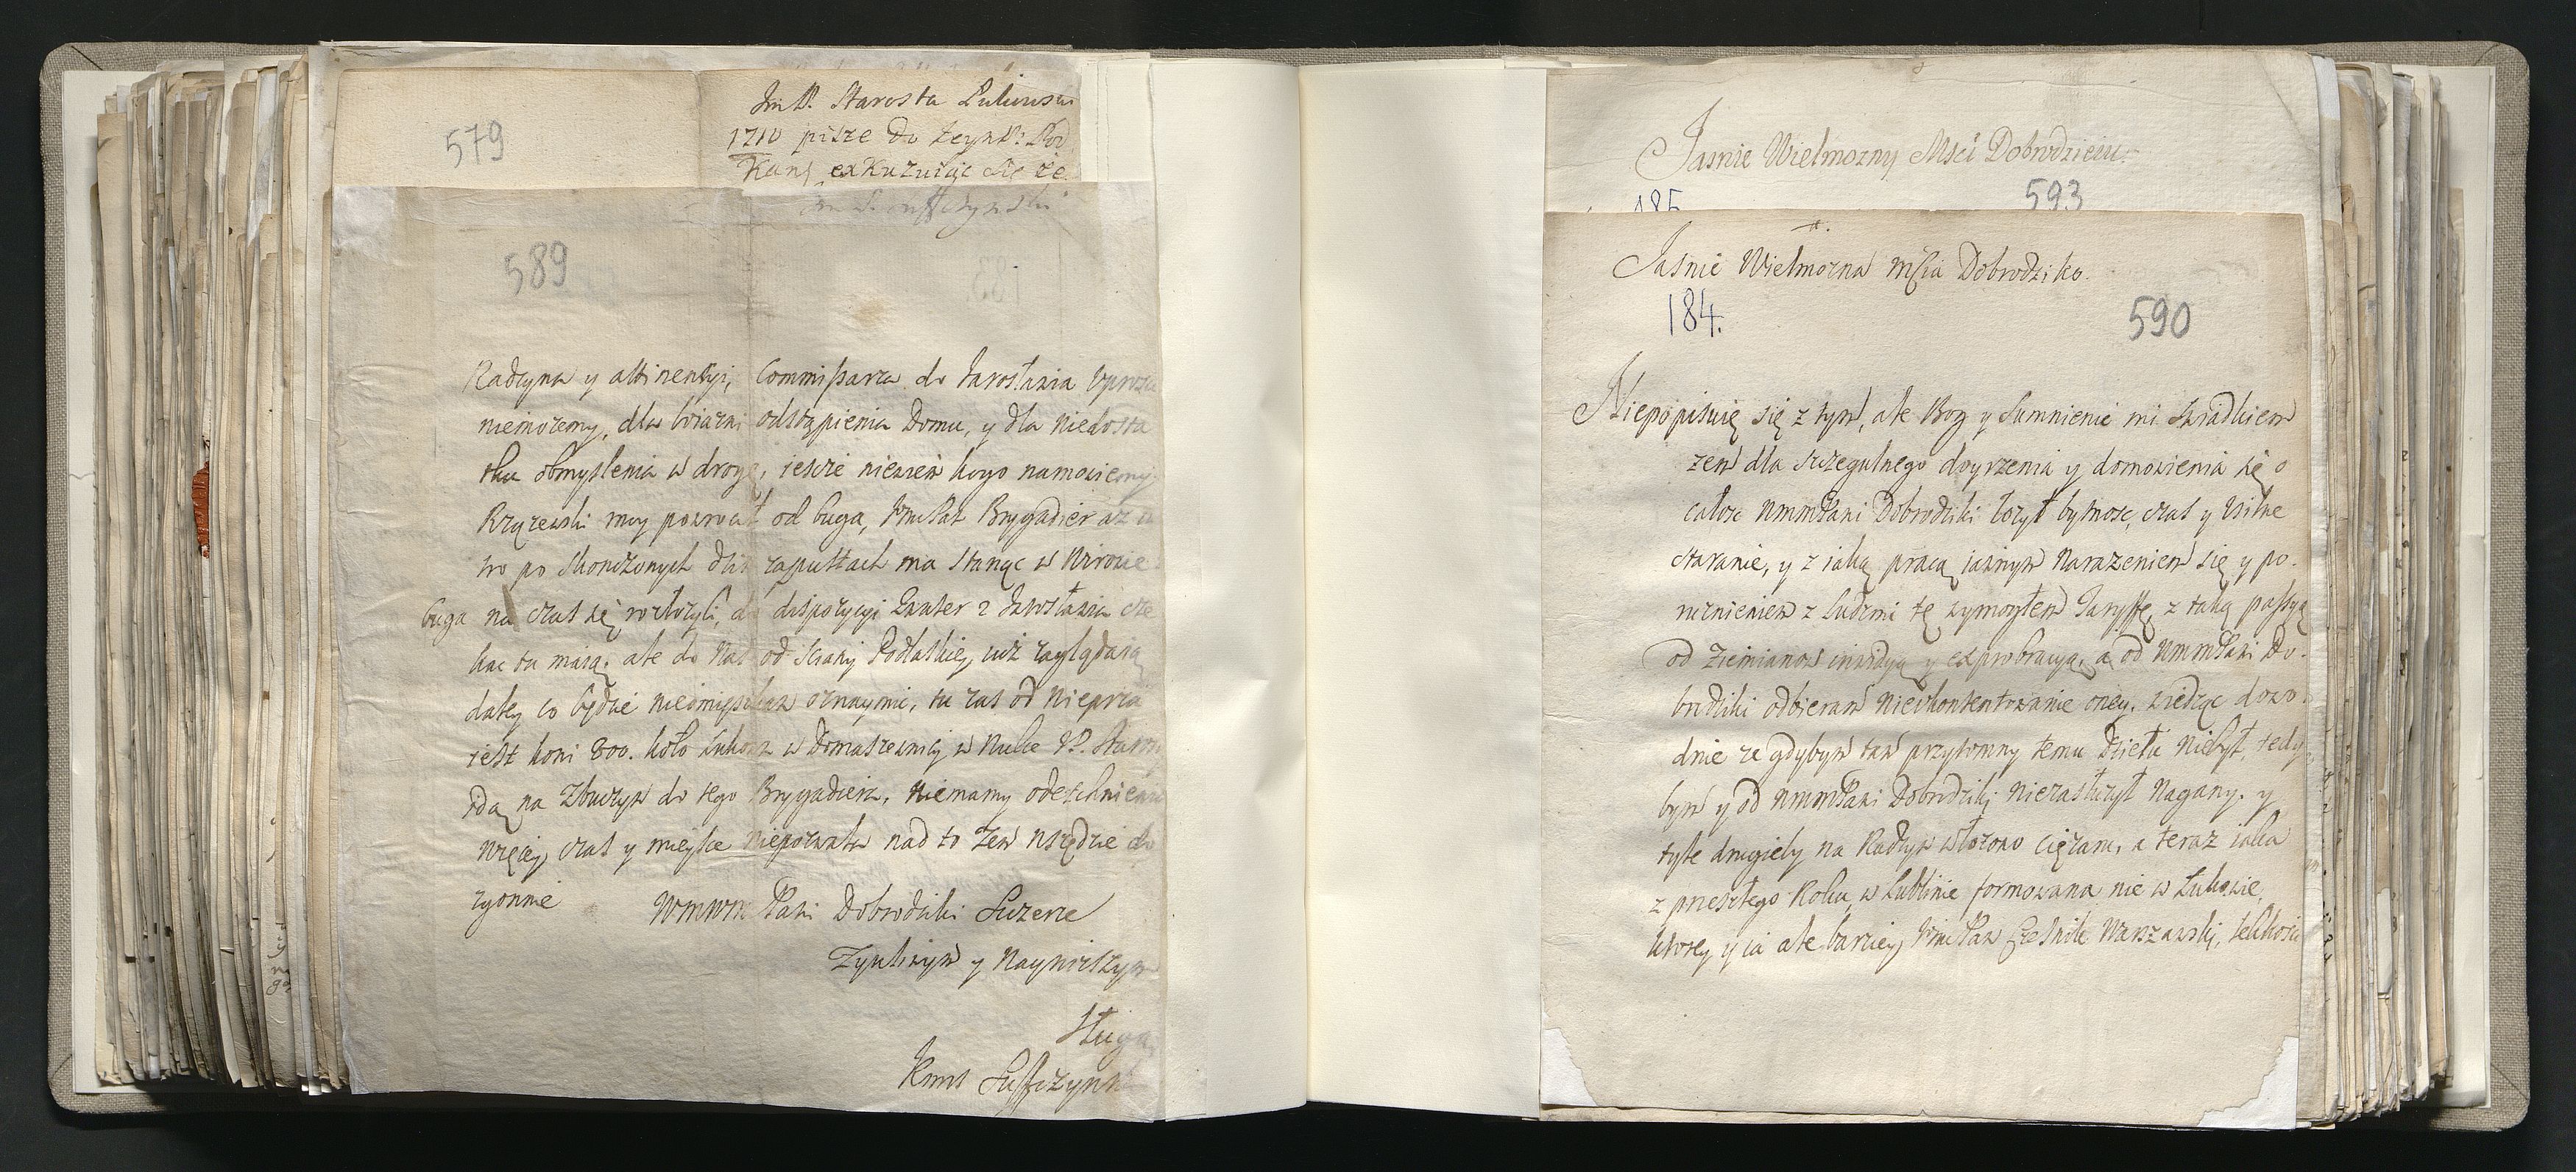 579
Im P. Starosta Lukowski
1710 pisze do Jeym P: Pod
Kanc exkuzuiąc się że
589
Radzyna y attinencyi, Commissarza do Jarosławia
niemożemy, dla boiazni odstąpienia Domu, y dla niedosta
tku obmyslenia w drogę, iescze niewiem kogo namowiemy
powrocił od Buga, Brygadier aż
po skonczonych zapustach ma stanąc w
Buga na czas się rozłożyli, dyspozycyi z Jarosławia cze
kac tu maią. ale do Nas od sciany Podlaskiey, iusz zaglądaią
daley co będzie oznaymie, tu zas od
iest koni 800. koło Lukowa w Domaszewnicy w
idą na Zbuczyn do tego Brygadiera, Niemamy odetchnienia
więcey czas y mieysce niepozwala nad to żem wszędzie do
zgonnie
WMWM Pani Dobrodziki Szczerze
Zyczliwym y Nayniższym
Sługą
593
185
Jasnie Wielmozny Msci Dobrodzieiu
Jasnie Wielmozna Mscia Dobrodziko.
184.
590
Niepopisuię się z tym, ale Bog y Sumnienie mi Swiadkiem
zem dla sczegulnego doyrzenia y domowienia się o
całosc WMMPani Dobrodziki łozył bytnosc, czas y Usilne
staranie, y z iaką pracą iawnym Narazeniem się y po
roznieniem z Ludzmi tę wymogłem Taryffę, z taką passyą
od Ziemianow inwidyą y exprobracyą, a od WMMPani Do
brodziki odbieram nieukontentowanie oney. wiedząc dowo
dnie ze gdybym tam przytomny temu dziełu niebył, tedy
bym y od WMMPani Dobrodziki niezasłuzył Nagany. y
tyle drugieby na Radzyn włozono cięzaru, a teraz iaka
z przeszłego Roku w Lublinie formowana nie w Lukowie,
ktorey y ia ale barziey Czesnik Warszawski,